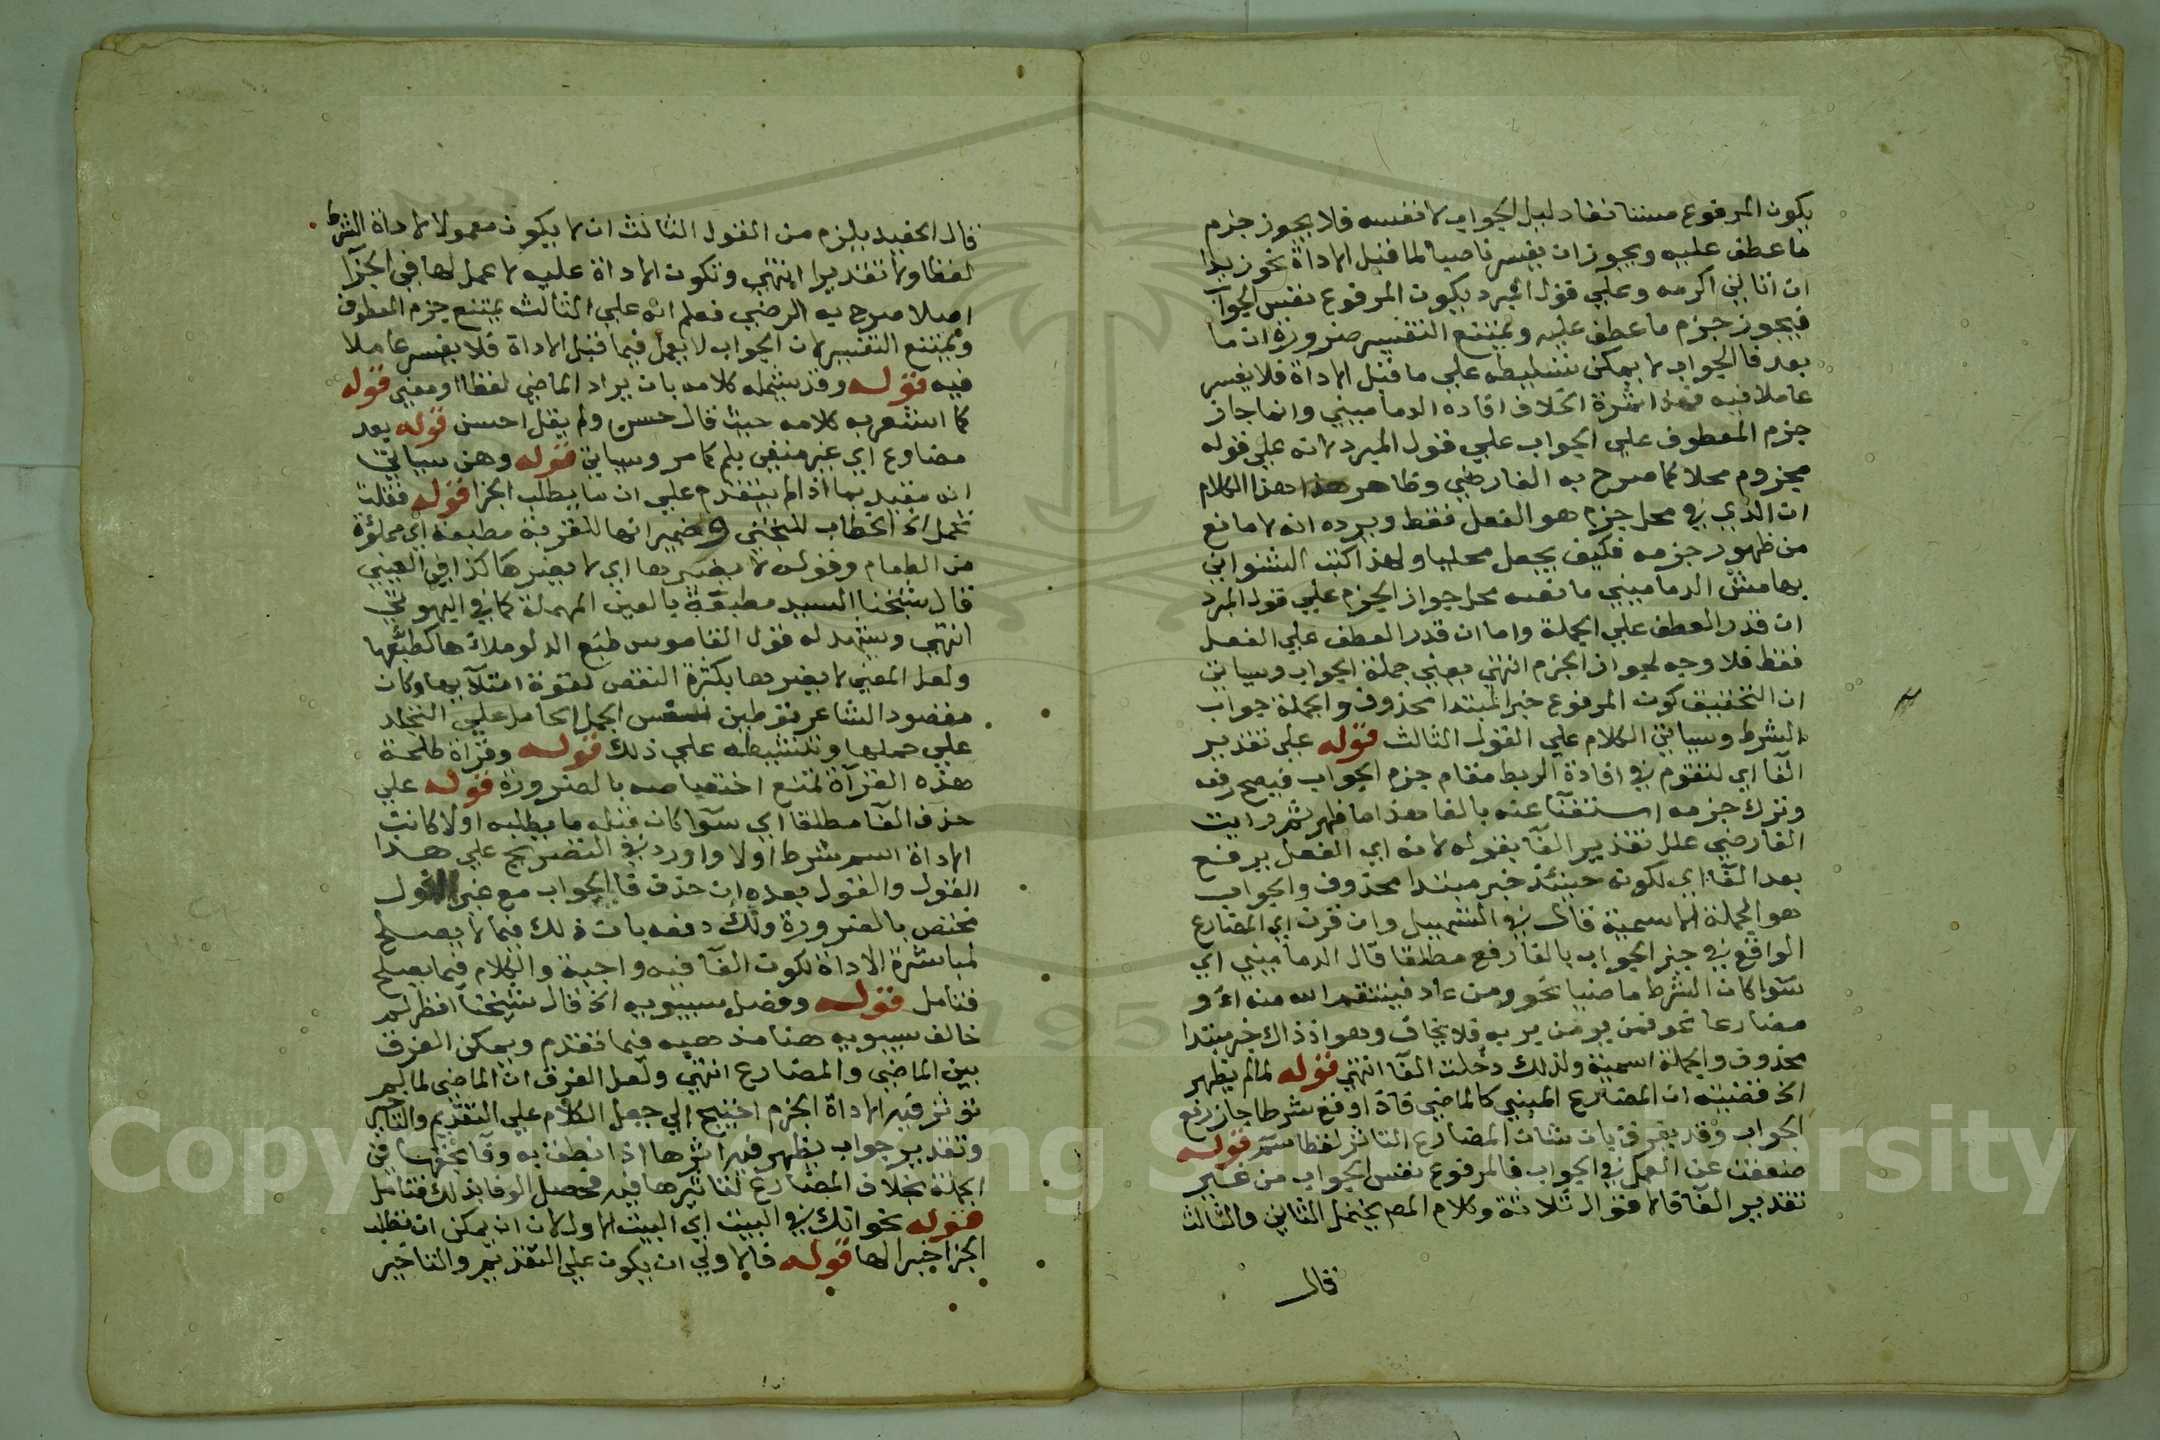 يكون المرفوع مستانفا دليل الجواب لا نفسه فلا يجوز جزم
ما عطف عليه ويجوز ان يفسر ناصبا لما قبل الاداة نحو زيدا
ان اتاني اكرمه وعلي قول المبرد يكون المرفوع نفس الجواب
فيجوز جزم ما عطف عليه ويمتنع التفسير ضرورة ان ما
بعد فا الجواب لا يمكن تسليطه علي ما قبل الاداة فلا يفسر
عاملا فيه فهذا ثمرة الخلاف افاده الدماميني وانما جاز
جزم المعطوف علي الجواب علي قول المبرد لانه علي قوله
مجزوم محلا كما صرح به الفارضي وظاهر هذا الكلام
ان الذي في محل جزم هو الفعل فقط ويرده انه لا مانع
من ظهور جزمه فكيف يجعل محليا ولهذا كتب الشنواني
بهامش الدماميني ما نصه محل جواز الجزم علي قول المبرد
ان قدر العطف علي الجملة واما ان قدر العطف علي الفعل
فقط فلا وجه لجواز الجزم انتهي يعني جملة الجواب وسياتي
ان التحقيق كون المرفوع خبر المبتدا محذوف والجملة جواب
الشرط وسياتي الكلام علي القول الثالث قوله علي تقدير
الفا اي لتقوم في افادة الربط مقام جزم الجواب فيصح رفعه
وترك جزمه استغنا عنه بالفا هذا ما ظهر ثم رايت
الفارضي علل تقدير الفا بقوله لانه اي الفعل يرفع
بعد الفا اي لكونه حينئذ خبر مبتدا محذوف والجواب
هو الجملة الاسمية قال في التسهيل وان قرن اي المضارع
الواقع في حيز الجواب بالفا رفع مطلقا قال الدماميني اي
سوا كان الشرط ماضيا نحو ومن عاد فينتقم الله منه او
مضارعا نحو فمن يومن بربه فلا يخاف وهو اذ ذاك خبر مبتدا
محذوف والجملة اسمية ولذلك دخلت الفا انتهي قوله لما لم يظهر
الخ قضيته ان المضارع المبني كالماضي فاذا وقع شرطا جاز رفع
الجواب وقد يفرق بان شان المضارع التاثر لفظا سم قوله
ضعفت عن العمل في الجواب فالمرفوع نفس الجواب من غير
تقدير الفا فالاقوال ثلاثة وكلام المص يحتمل الثاني والثالث
قال
قال الحفيد يلزم من القول الثالث ان لا يكون معمولا لاداة الشرط
لفظا ولا تقديرا انتهي وتكون الاداة عليه لا عمل لها في الجزا
اصلا صرح به الرضي فعلم انه علي الثالث يمتنع جزم المعطوف
ويمتنع التفسير لان الجواب لا يعمل فيما قبل الاداة فلا يفسر عاملا
فيه قوله وقد يشمله كلامه بان يراد الماضي لفظا او معني قوله
كما اشعر به كلامه حيث قال حسن ولم يقل احسن قوله بعد
مضارع اي غير منفي بلم كما مر وسياتي قوله وهن سياتي
انه مقيد بما اذا لم يتقدم علي ان ما يطلب الجزا قوله فقلت
تحمل الخ الخطاب للبختي وضمير انها للقرية مطبعة اي مملؤة
من الطعام وقوله لا يضيرها اي لا يضرها كذا في العيني
قال شيخنا السيد مطبعة بالعين المهملة كما في اليهوتي
انتهي ويشهد له قول القاموس طبع الدلو ملاها كطبعها
ولعل المعني لا يضيرها بكثرة النقص لقوة امتلائها وكان
مقصود الشاعر تقرطين نفس الجمل الحامل علي التجلد
علي حملها وتنشيطه علي ذلك قوله وقراة طلحة
هذه القراة تمنع اختصاصه بالضرورة قوله علي
حذف الفا مطلقا اي سوا كان قبله ما يطلبه اولا كانت
الاداة اسم شرط اولا واورد في التصريح علي هذا
القول والقول بعده ان حذف فا الجواب مع غير القول
مختص بالضرورة ولك دفعه بان ذلك فيما لا يصلح
لمباشرة الاداة لكون الفا فيه واجبة والكلام فيما يصلح
فتامل قوله وفصل سيبويه الخ قال شيخنا انظر لم
خالف سيبويه هنا مذهبه فيما تقدم ويمكن الفرق
بين الماضي والمضارع انتهي ولعل الفرق ان الماضي لما لم
توثر فيه الاداة الجزم احتيج الي جعل الكلام علي التقديم والتاخير
وتقدير جواب يظهر فيه اثرها اذا نطق به وفا بحقها في
الجملة بخلاف المضارع لتاثرها فيه فحصل الوفا بذلك فتامل
قوله نحو انك في البيت اي البيت الاول لان ان يمكن ان تطلب
الجزا خبرا لها قوله فالاولي ان يكون علي التقديم والتاخير